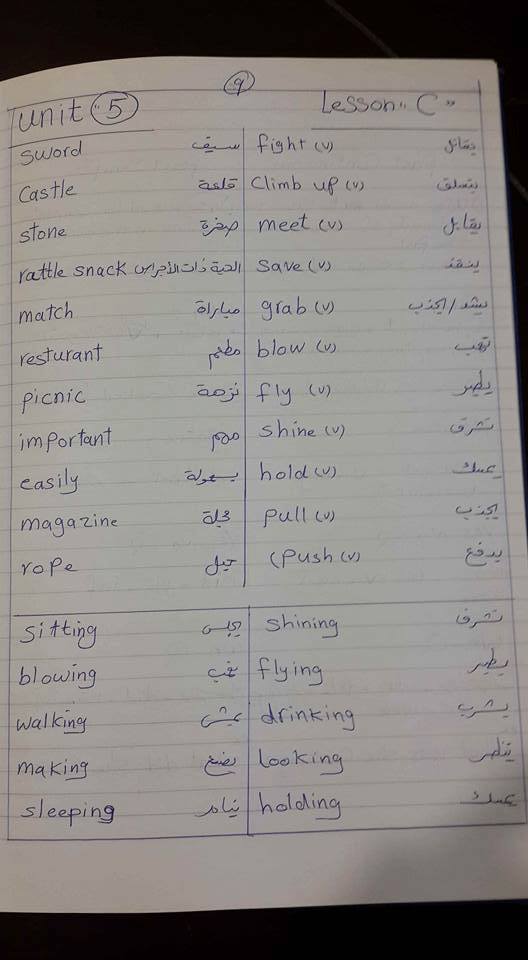 ٩
Unit 5 Lesson "C"
sword سيف fight (v) يقاتل
Castle قلعة Climb up (v) يتسلق
stone صخرة meet (v) يقابل
rattle snack الحية ذات الأجراس save (v) ينقذ
match مباراة grab (v) يشد / يجذب
resturant مطعم blow (v) تهب
picnic نزهة fly (v) يطير
important مهم shine (v) تشرق
easily بسهولة hold (v) يمسك
magazine مجلة pull (v) يجذب
rope حبل (push (v) يدفع
sitting يجلس shining تشرق
blowing تهب flying يطير
walking يمشى drinking يشرب
making يصنع looking ينظر
sleeping ينام holding يمسك